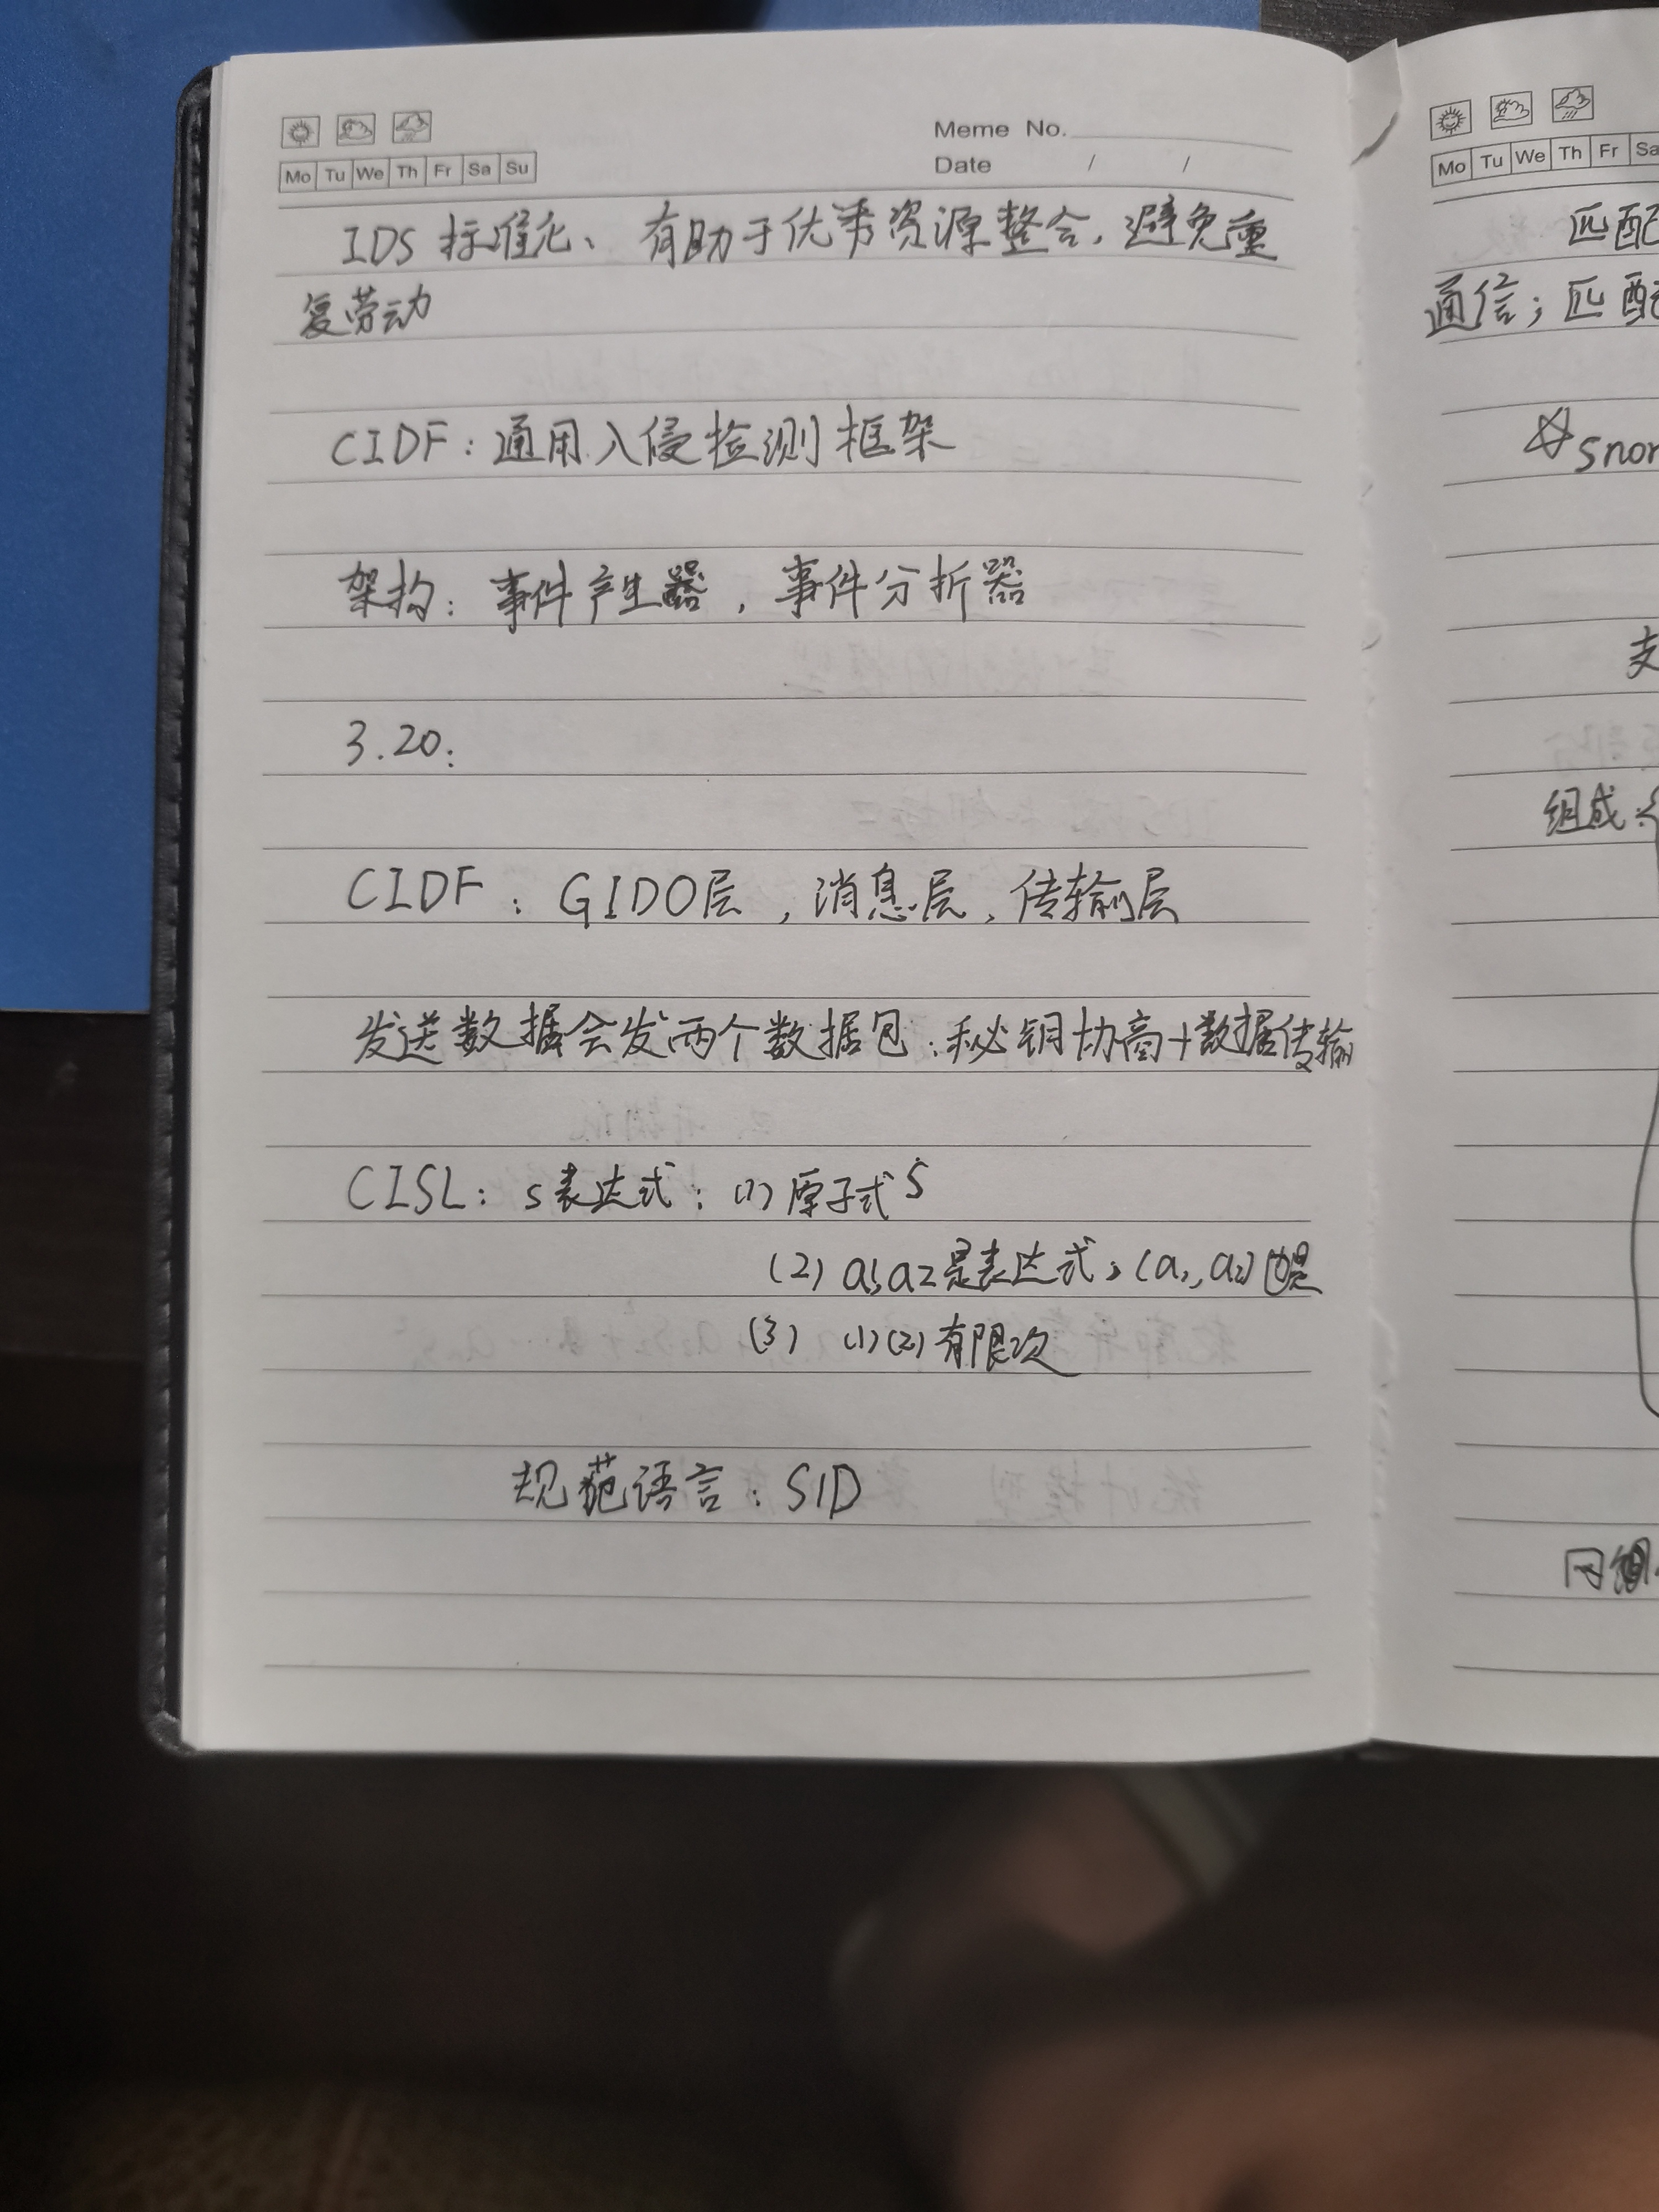 Meme No.
Mo Tu We Th Fr Sa Su
Date / /
IDS 标准化、有助于优秀资源整合,避免重
复劳动
CIDF:通用入侵检测框架
架构:事件产生器,事件分折器
3.20:
CIDF:GIDO层,消息层,传输层
发送数据会发两个数据包:秘钥协商+数据传输
CISL:S表达式:(1) 原子式S
(2) a1,a2是表达式,(a1,a2)也是
(3) (1)(2)有限次
规范语言:SID
Mo Tu We Th Fr Sa
匹配
通信;匹配
☆snor
支
组成: